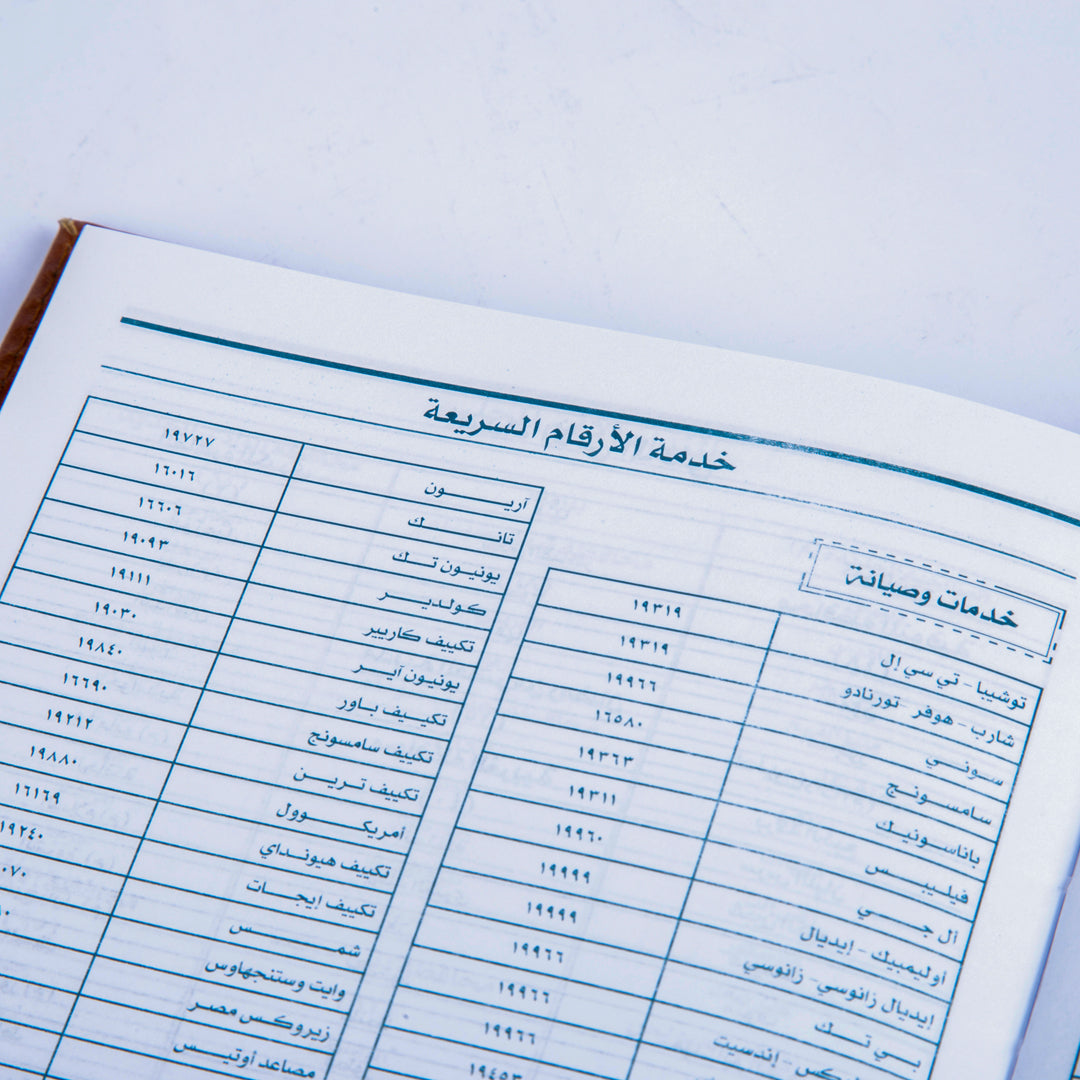 خدمة الأرقام السريعة
خدمات وصيانة
توشيبا - تي سي إل ١٩٣١٩
شارب - هوفر - تورنادو ١٩٣١٩
سوني ١٩٩٦٦
سامسونج ١٦٥٨٠
باناسونيك ١٩٣٦٣
فيليبس ١٩٣١١
أل جي ١٩٩٦٠
أوليمبيك - إيديال ١٩٩٩٩
إيديال زانوسي - زانوسي ١٩٩٩٩
بي تك ١٩٩٦٦
- إندسيت ١٩٩٦٦
١٩٩٦٦
١٩٤٥٣
آريون ١٩٧٢٧
تانك ١٦٠١٦
يونيون تك ١٦٦٠٦
كولدير ١٩٠٩٣
تكييف كاريير ١٩١١١
يونيون آير ١٩٠٣٠
تكييف باور ١٩٨٤٠
تكييف سامسونج ١٦٦٩٠
تكييف ترين ١٩٢١٢
أمريكوول ١٩٨٨٠
تكييف هيونداي ١٦١٦٩
تكييف إيجات ١٩٢٤٠
شمس
وايت وستنجهاوس
زيروكس مصر
مصاعد أوتيس